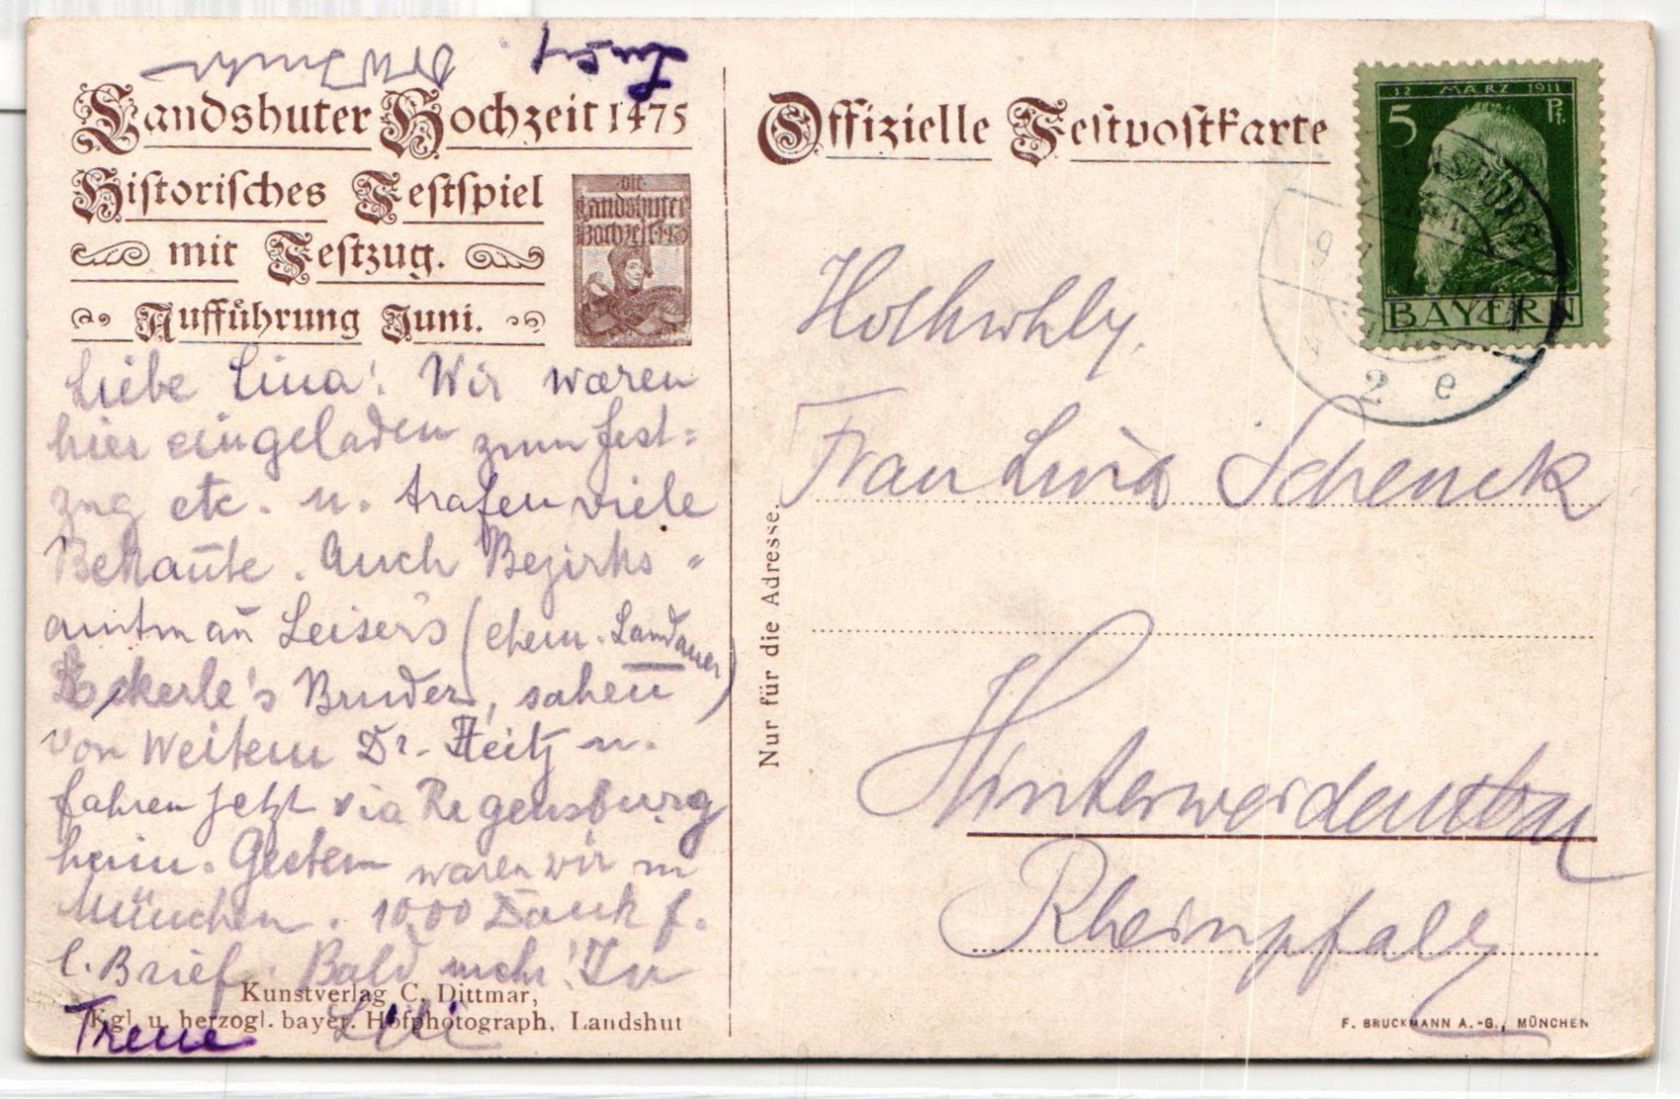 Landshuter Hochzeit 1475
Historisches Festspiel
mit Festzug.
Aufführung Juni.
die
Landshuter
Hochzeit 1475
Liebe Lina! Wir waren
hier eingeladen zum Fest=
zug etc. u. trafen viele
Bekan̄te. Auch Bezirks=
amtman̄ Leiser's (ehem. Landauer)
Eckerle's Bruder, sahen
von Weitem Dr. Heitz u.
fahren jetzt via Regensburg
heim. Gestern waren wir in
München. 1000 Dank f.
l. Brief. Bald mehr! In
Treue Lili
Kunstverlag C. Dittmar,
Kgl. u. herzogl. bayer. Hofphotograph, Landshut
Offizielle Festpostkarte
12 MÄRZ 1911
5 Pf.
BAYERN
2 e
Nur für die Adresse.
Frau Lina Schenck
Hinterweidenthal
Rheinpfalz
F. BRUCKMANN A.-G., MÜNCHEN